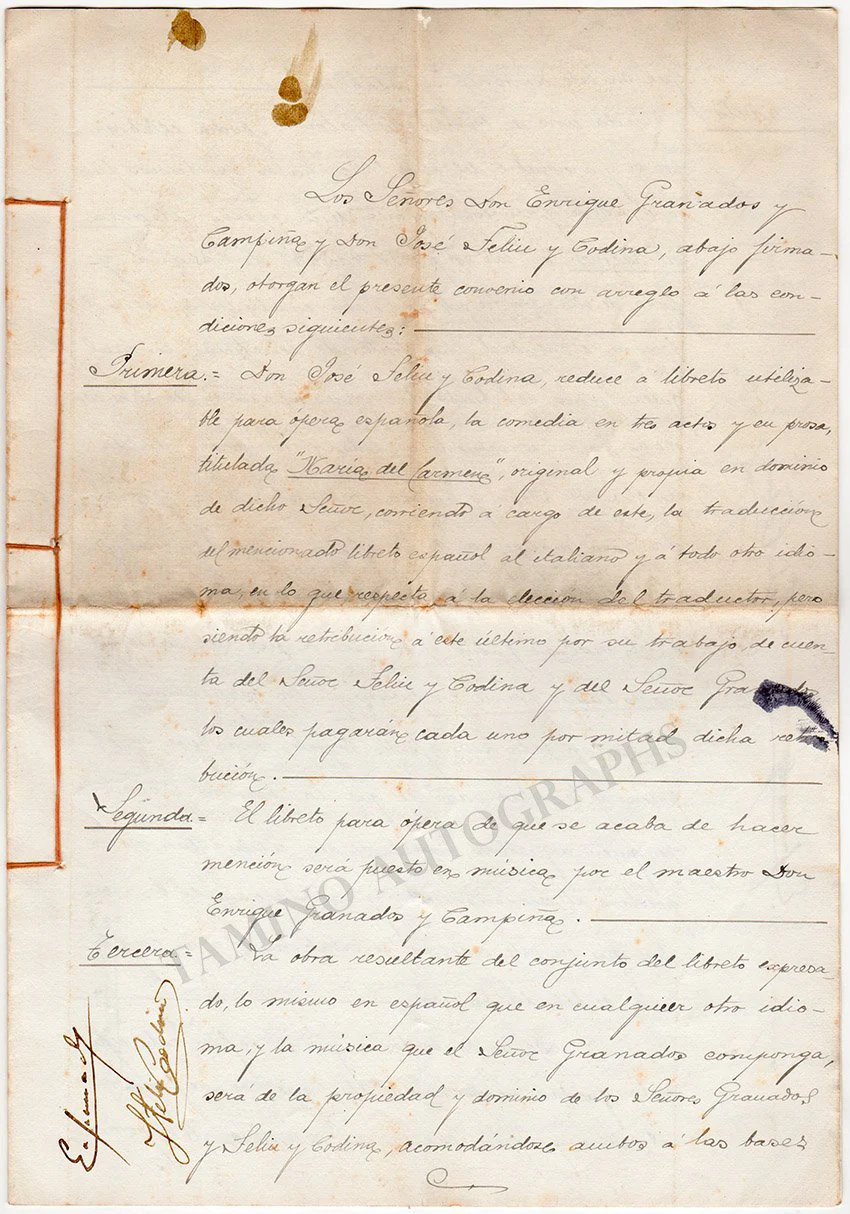 Los Señores Don Enrique Granados y
Campiña y Don José Feliu y Codina, abajo firma-
dos, otorgan el presente convenio con arreglo á las con-
diciones siguientes:
Primera.= Don José Feliu y Codina, reduce á libreto utiliza-
ble para ópera española, la comedia en tres actos y en prosa,
titulada "María del Carmen", original y propia en dominio
de dicho Señor, corriendo á cargo de este, la traducción
del mencionado libreto español al italiano y á todo otro idio-
ma, en lo que respecta á la elección del traductor, pero
siendo la retribución á este último por su trabajo, de cuen-
ta del Señor Feliu y Codina y del Señor Granados
los cuales pagarán cada uno por mitad dicha retri-
bución.
Segunda= El libreto para ópera de que se acaba de hacer
mención será puesto en música por el maestro Don
Enrique Granados y Campiña.
Tercera= La obra resultante del conjunto del libreto expresa-
do, lo mismo en español que en cualquier otro idio-
ma, y la música que el Señor Granados componga,
será de la propiedad y dominio de los Señores Granados
y Feliu y Codina, acomodándose ambos á las bases
E Granados
J Feliu Codina
TAMINO AUTOGRAPHS